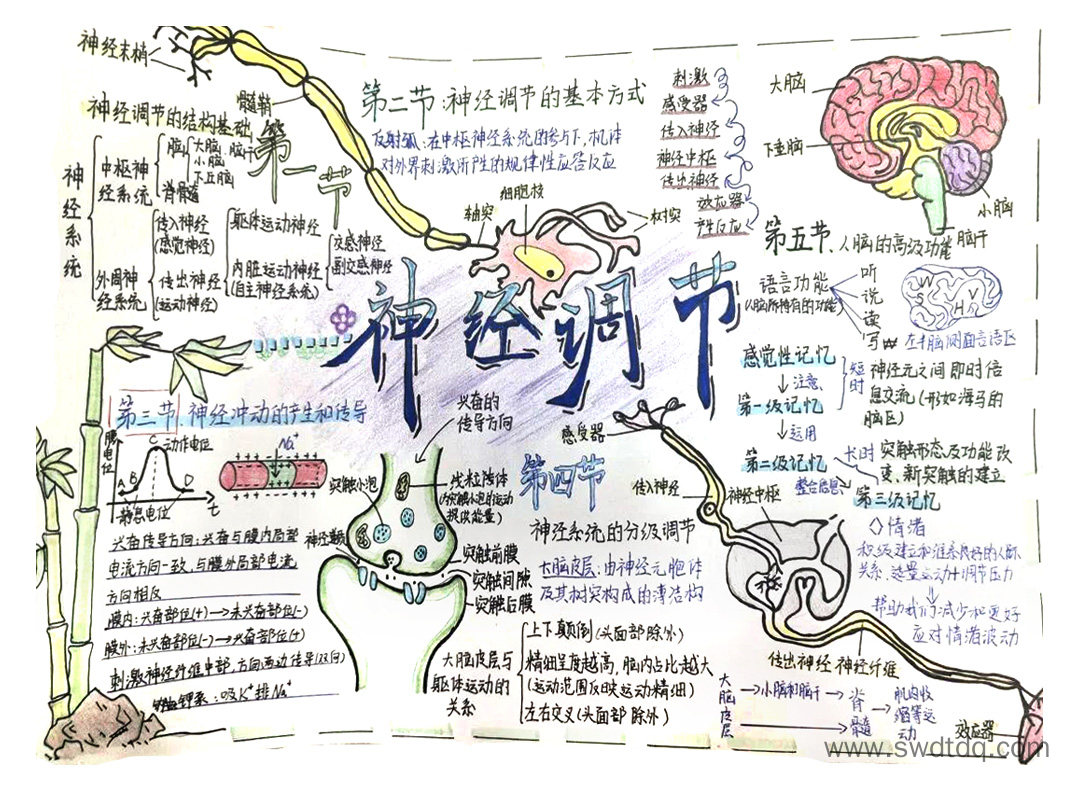 神经末梢
髓鞘
神经调节的结构基础
第一节
神经系统
中枢神经系统
脑
大脑
小脑
脑干
下丘脑
脊髓
外周神经系统
传入神经
(感觉神经)
传出神经
(运动神经)
躯体运动神经
内脏运动神经
(自主神经系统)
交感神经
副交感神经
第二节:神经调节的基本方式
反射弧:在中枢神经系统的参与下,机体
对外界刺激所产生的规律性应答反应
刺激
感受器
传入神经
神经中枢
传出神经
效应器
产生反应
细胞核
轴突
树突
神经调节
大脑
下丘脑
小脑
脑干
第五节、人脑的高级功能
语言功能
(人脑所特有的功能)
听
说
读
写
W
V
S
H
左半脑侧面言语区
感觉性记忆
↓注意
第一级记忆
↓运用
第二级记忆
第三级记忆
短时
神经元之间即时信
息交流(形如海马的
脑区)
长时
突触形态及功能改
变、新突触的建立
◇情绪
帮助我们减少和更好
应对情绪波动
第三节、神经冲动的产生和传导
膜电位
动作电位
静息电位
A
B
C
D
t
Na⁺
兴奋传导方向:兴奋与膜内局部
电流方向一致、与膜外局部电流
方向相反
膜内:兴奋部位(+)→未兴奋部位(-)
膜外:未兴奋部位(-)→兴奋部位(+)
刺激神经纤维中部,方向两动传导(双向)
钾系:吸K⁺排Na⁺
兴奋的
传导方向
突触小泡
线粒体
突触前膜
突触间隙
突触后膜
第四节
神经系统的分级调节
大脑皮层:由神经元胞体
及其树突构成的薄结构
大脑皮层与
躯体运动的
关系
上下颠倒(头面部除外)
精细程度越高,脑内占比越大
(运动范围反映运动精细)
左右交叉(头面部除外)
感受器
传入神经
神经中枢
传出神经
神经纤维
效应器
大脑皮层
→小脑和脑干→
脊髓
→
肌肉收
缩等运
动
www.swdtdq.com